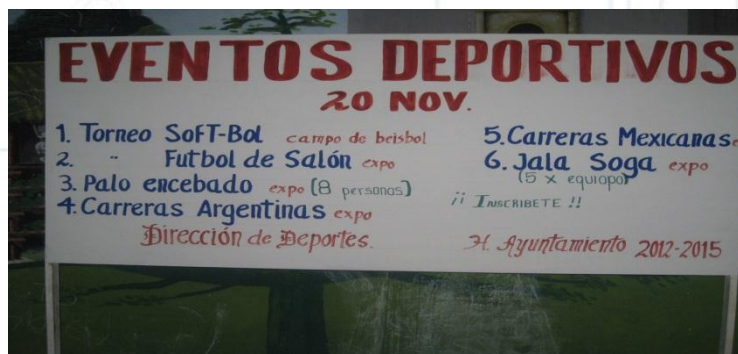 EVENTOS DEPORTIVOS
20 NOV.
1. Torneo SoFT-Bol campo de beisbol
2. " Futbol de Salón expo
3. Palo encebado expo (8 personas)
4. Carreras Argentinas expo
5. Carreras Mexicanas
6. Jala Soga expo
(5 x equiopo)
¡¡ INSCRIBETE !!
Dirección de Deportes.
H. Ayuntamiento 2012-2015